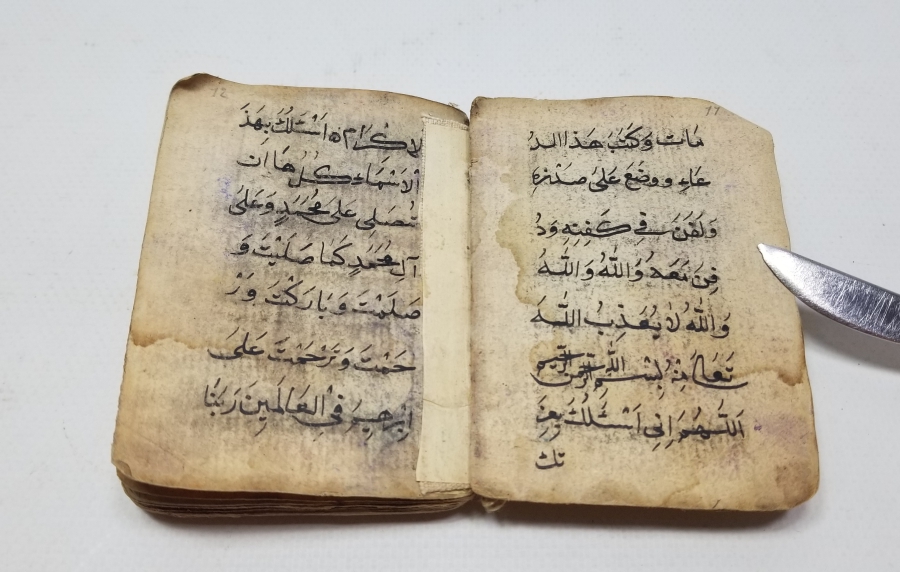 11
مات وكتب هذا الد
عاء ووضع على صدره
ولقن في كفنه ود
فن معه والله والله
والله لا يعذب الله
تعا بسم الله الرحمن الرحيم
اللهم اني اسئلك بعز
تك
12
لاكرام اسئلك بهذ
الاسماء كلها ان
تصلى على محمد وعلى
آل محمد كما صليت و
صلمت وباركت ور
حمت وترحمت على
ابرهيم في العالمين ربنا